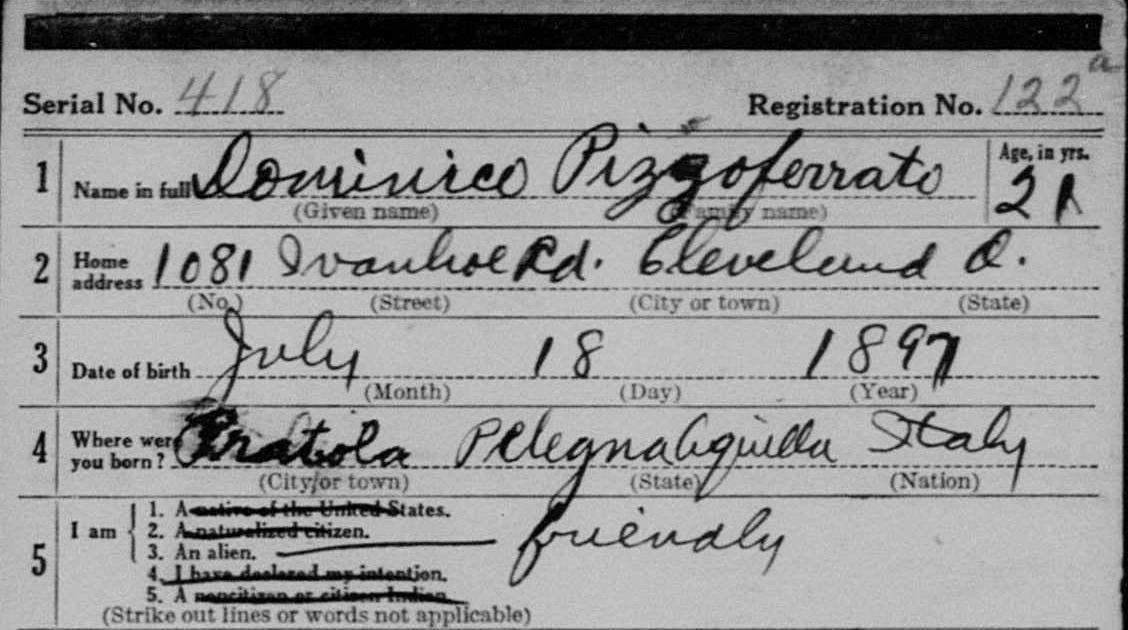 Serial No. 418 Registration No. 122 a
1 Name in full Dominico Pizzoferrato Age, in yrs. 21
(Given name) (Family name)
2 Home address 1081 Ivanhoe Rd. Cleveland O.
(No.) (Street) (City or town) (State)
3 Date of birth July 18 1897
(Month) (Day) (Year)
4 Where were you born? Pratola Pelegna Aquilla Italy
(City or town) (State) (Nation)
5 I am
1. A native of the United States.
2. A naturalized citizen.
3. An alien. friendly
4. I have declared my intention.
5. A noncitizen or citizen Indian.
(Strike out lines or words not applicable)